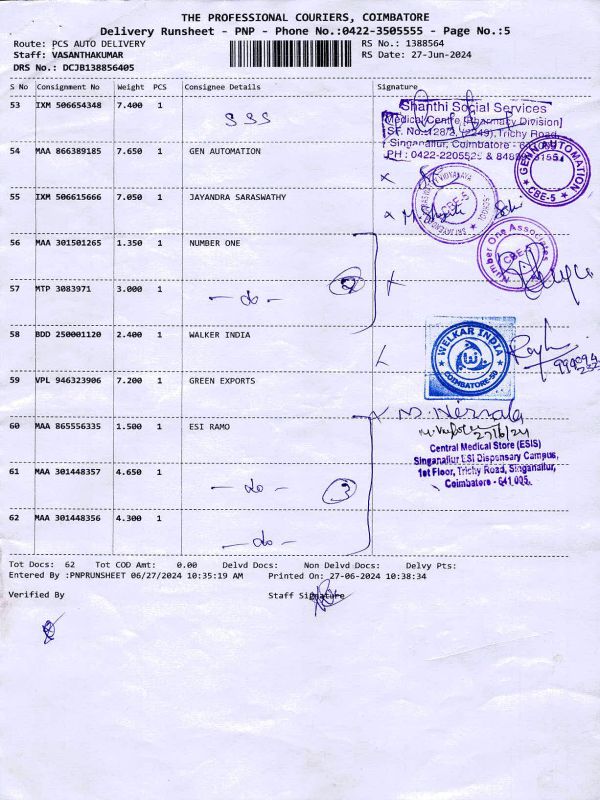 THE PROFESSIONAL COURIERS, COIMBATORE
Delivery Runsheet - PNP - Phone No.:0422-3505555 - Page No.:5
Route: PCS AUTO DELIVERY RS No.: 1388564
Staff: VASANTHAKUMAR RS Date: 27-Jun-2024
DRS No.: DCJB138856405
S No Consignment No Weight PCS Consignee Details Signature
53 IXM 506654348 7.400 1 SSS
Shanthi Social Services
Medical Centre [Pharmacy Division]
SF. No.:128/2, (2249), Trichy Road,
Singanallur, Coimbatore -
PH : 0422-220552
54 MAA 866389185 7.650 1 GEN AUTOMATION
GENN AUTOMATION
CBE-5
55 IXM 506615666 7.050 1 JAYANDRA SARASWATHY
CBE-5
56 MAA 301501265 1.350 1 NUMBER ONE
Number One Associates
CBE-5
57 MTP 3083971 3.000 1 - do - 2
58 BDD 250001120 2.400 1 WALKER INDIA
WELKAR INDIA
COIMBATORE-50
59 VPL 946323906 7.200 1 GREEN EXPORTS
60 MAA 865556335 1.500 1 ESI RAMO
M. Nirmala
27/6/24
Central Medical Store (ESIS)
Singanallur ESI Dispensary Campus,
1st Floor, Trichy Road, Singanallur,
Coimbatore - 641 005.
61 MAA 301448357 4.650 1 - do - 3
62 MAA 301448356 4.300 1 - do -
Tot Docs: 62 Tot COD Amt: 0.00 Delvd Docs: Non Delvd Docs: Delvy Pts:
Entered By :PNPRUNSHEET 06/27/2024 10:35:19 AM Printed On: 27-06-2024 10:38:34
Verified By Staff Signature